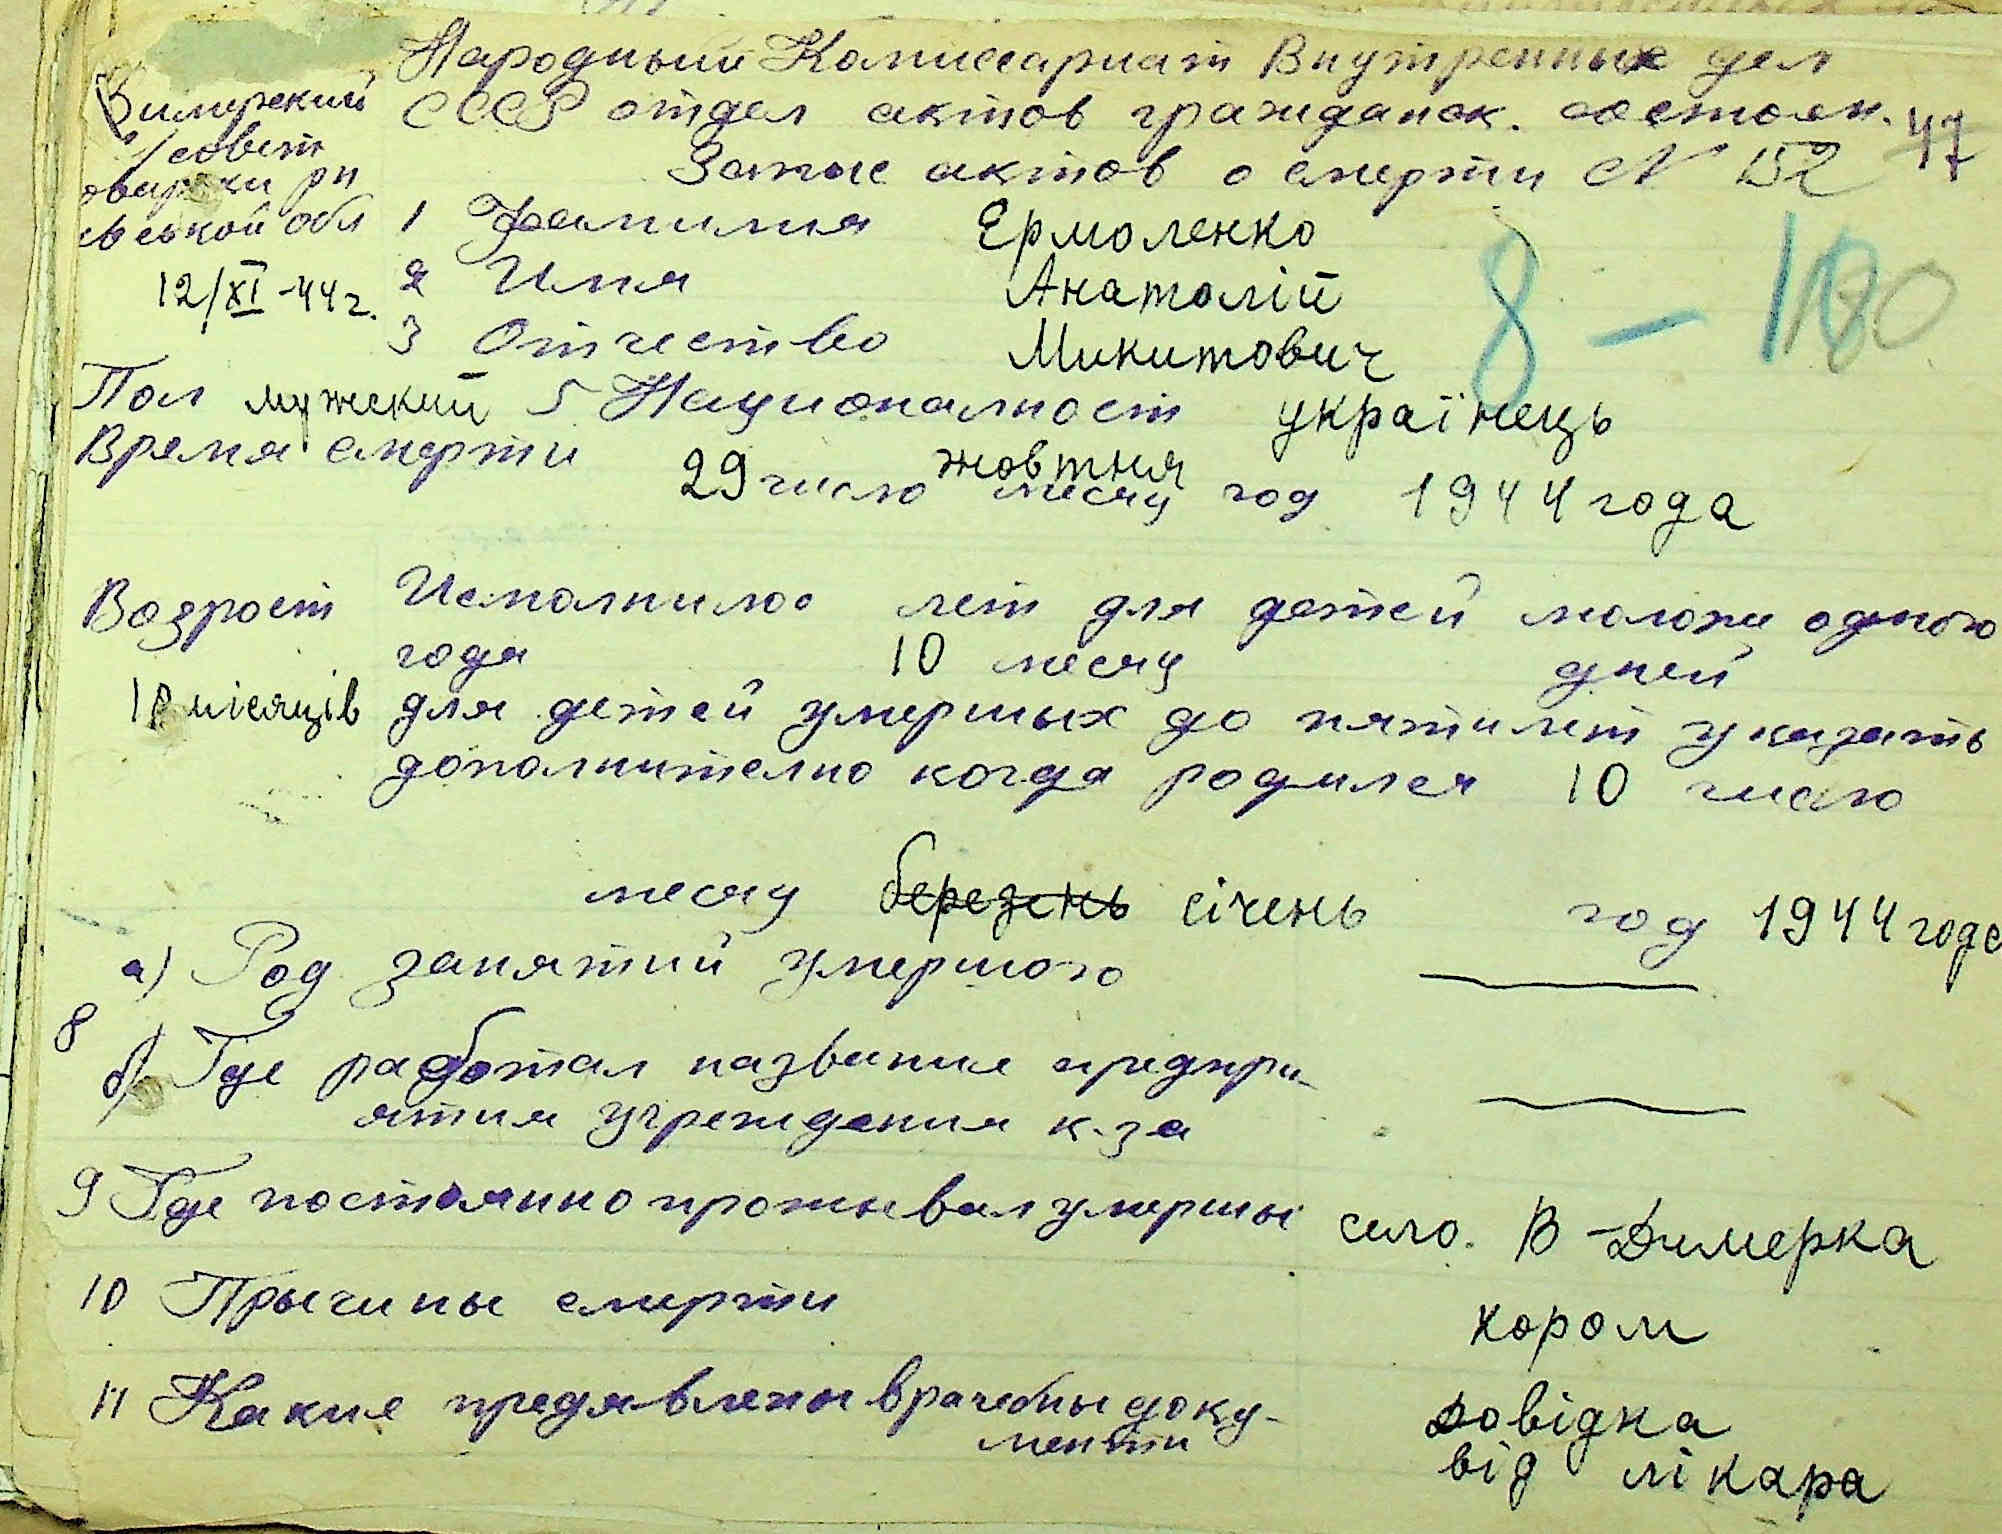 Народный Комиссариат Внутренных дел
СССР отдел актов гражданск. состоян.
47
Запис актов о смерти N 152
Димерский
с/совет
рн
ской обл
12/XI-44г.
1 Фамилия Ермоленко
2 Имя Анатолій
3 Отчество Микитович
8 - 180
Пол мужский 5 Националност українець
Время смерти
29 число жовтня месяц год 1944 года
Возрост Исполнилос лет для детей моложе одного
года 10 месяц дней
10 місяців для детей умерших до пяти лет указать
дополнително когда родился 10 число
месяц березень січень год 1944 года
а) Род занятий умершого
8
б) Где работал название предпри-
ятия учреждения к-за
9 Где постоянно прожывал умершы село. В-Димерка
10 Прычины смерти хором
11 Какие предявлены врачебны доку-
менты
довідка
від лікара